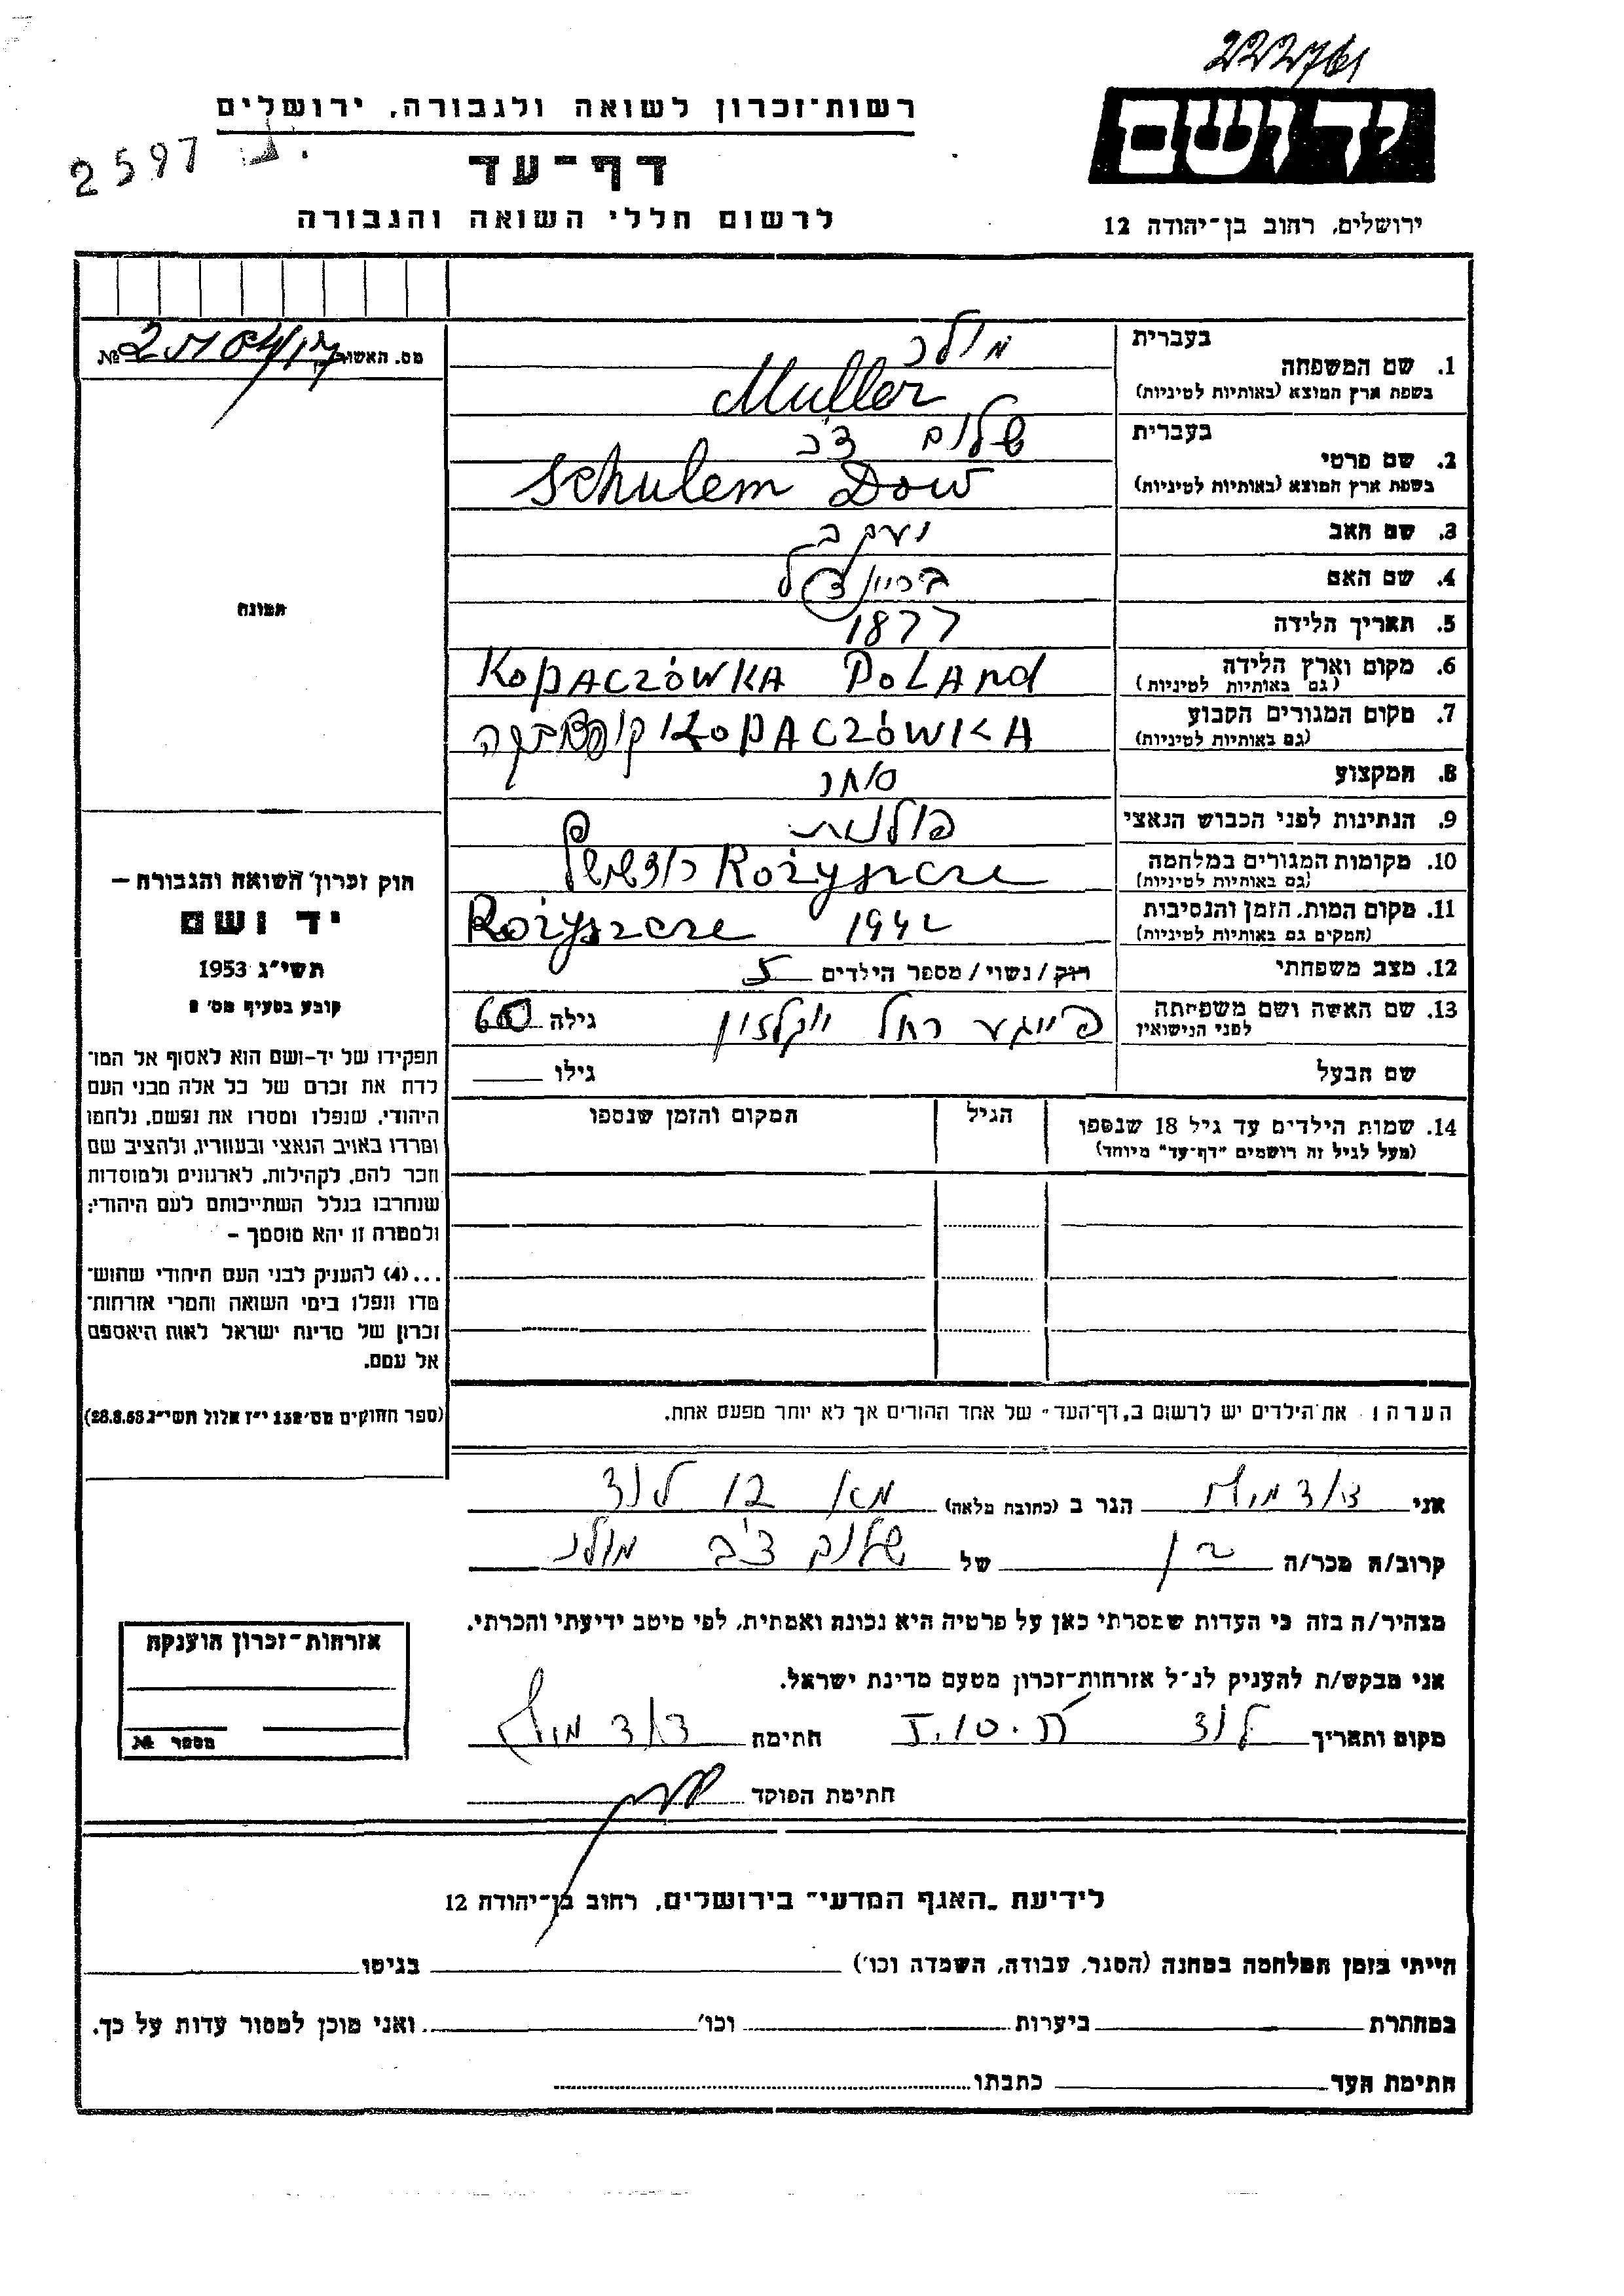 222761
ידושם
ירושלים, רחוב בן־יהודה 12
רשות־זכרון לשואה ולגבורה, ירושלים
2597
דף־עד
לרשום חללי השואה והגבורה
מס. האשור №
1. שם המשפחה בעברית מולר
בשפת ארץ המוצא (באותיות לטיניות) Muller
2. שם פרטי בעברית שלום דב
בשפת ארץ המוצא (באותיות לטיניות) Schulem Dow
3. שם האב יעקב
4. שם האם בריינדל
5. תאריך הלידה 1877
6. מקום וארץ הלידה (גם באותיות לטיניות) KOPACZÓWKA POLAND
7. מקום המגורים הקבוע (גם באותיות לטיניות) KOPACZÓWKA
8. המקצוע סוחר
9. הנתינות לפני הכבוש הנאצי פולנית
10. מקומות המגורים במלחמה (גם באותיות לטיניות) Rożyszcze
11. מקום המות, הזמן והנסיבות (המקים גם באותיות לטיניות) Rożyszcze 1942
12. מצב משפחתי רווק/נשוי/מספר הילדים 5
13. שם האשה ושם משפחתה לפני הנישואין פייגע רחל גילה 60
שם הבעל גילו
14. שמות הילדים עד גיל 18 שנספו הגיל המקום והזמן שנספו
(מעל לגיל זה רושמים "דף־עד" מיוחד)
תמונה
חוק זכרון השואה והגבורה –
יד ושם
תשי"ג 1953
קובע בסעיף מס׳ 2
תפקידו של יד-ושם הוא לאסוף אל המו־
לדת את זכרם של כל אלה מבני העם
היהודי, שנפלו ומסרו את נפשם, נלחמו
ומרדו באויב הנאצי ובעוזריו, ולהציב שם
וזכר להם, לקהילות, לארגונים ולמוסדות
שנחרבו בגלל השתייכותם לעם היהודי;
ולמטרה זו יהא מוסמך –
...(4) להעניק לבני העם היהודי שהוש־
מדו ונפלו בימי השואה והמרי אזרחות־
זכרון של מדינת ישראל לאות היאספם
אל עמם.
(ספר החוקים מס׳ 132 י"ז אלול תשי"ג 28.8.53)
הערה: את הילדים יש לרשום ב„דף־העד" של אחד ההורים אך לא יותר מפעם אחת.
אני הגר ב (כתובת מלאה) לוד
קרוב/ה מכר/ה בן של שלום דב מולר
מצהיר/ה בזה כי העדות שמסרתי כאן על פרטיה היא נכונה ואמתית, לפי מיטב ידיעתי והכרתי.
אני מבקש/ת להעניק לנ"ל אזרחות־זכרון מטעם מדינת ישראל.
מקום ותאריך לוד חתימה
חתימת הפוקד
אזרחות־זכרון הוענקה
מספר №
לידיעת „האגף המדעי" בירושלים, רחוב בן־יהודה 12
הייתי בזמן המלחמה במחנה (הסגר, עבודה, השמדה וכו׳) בגיטו
במחתרת ביערות וכו׳ ואני מוכן למסור עדות על כך.
חתימת העד כתבתו